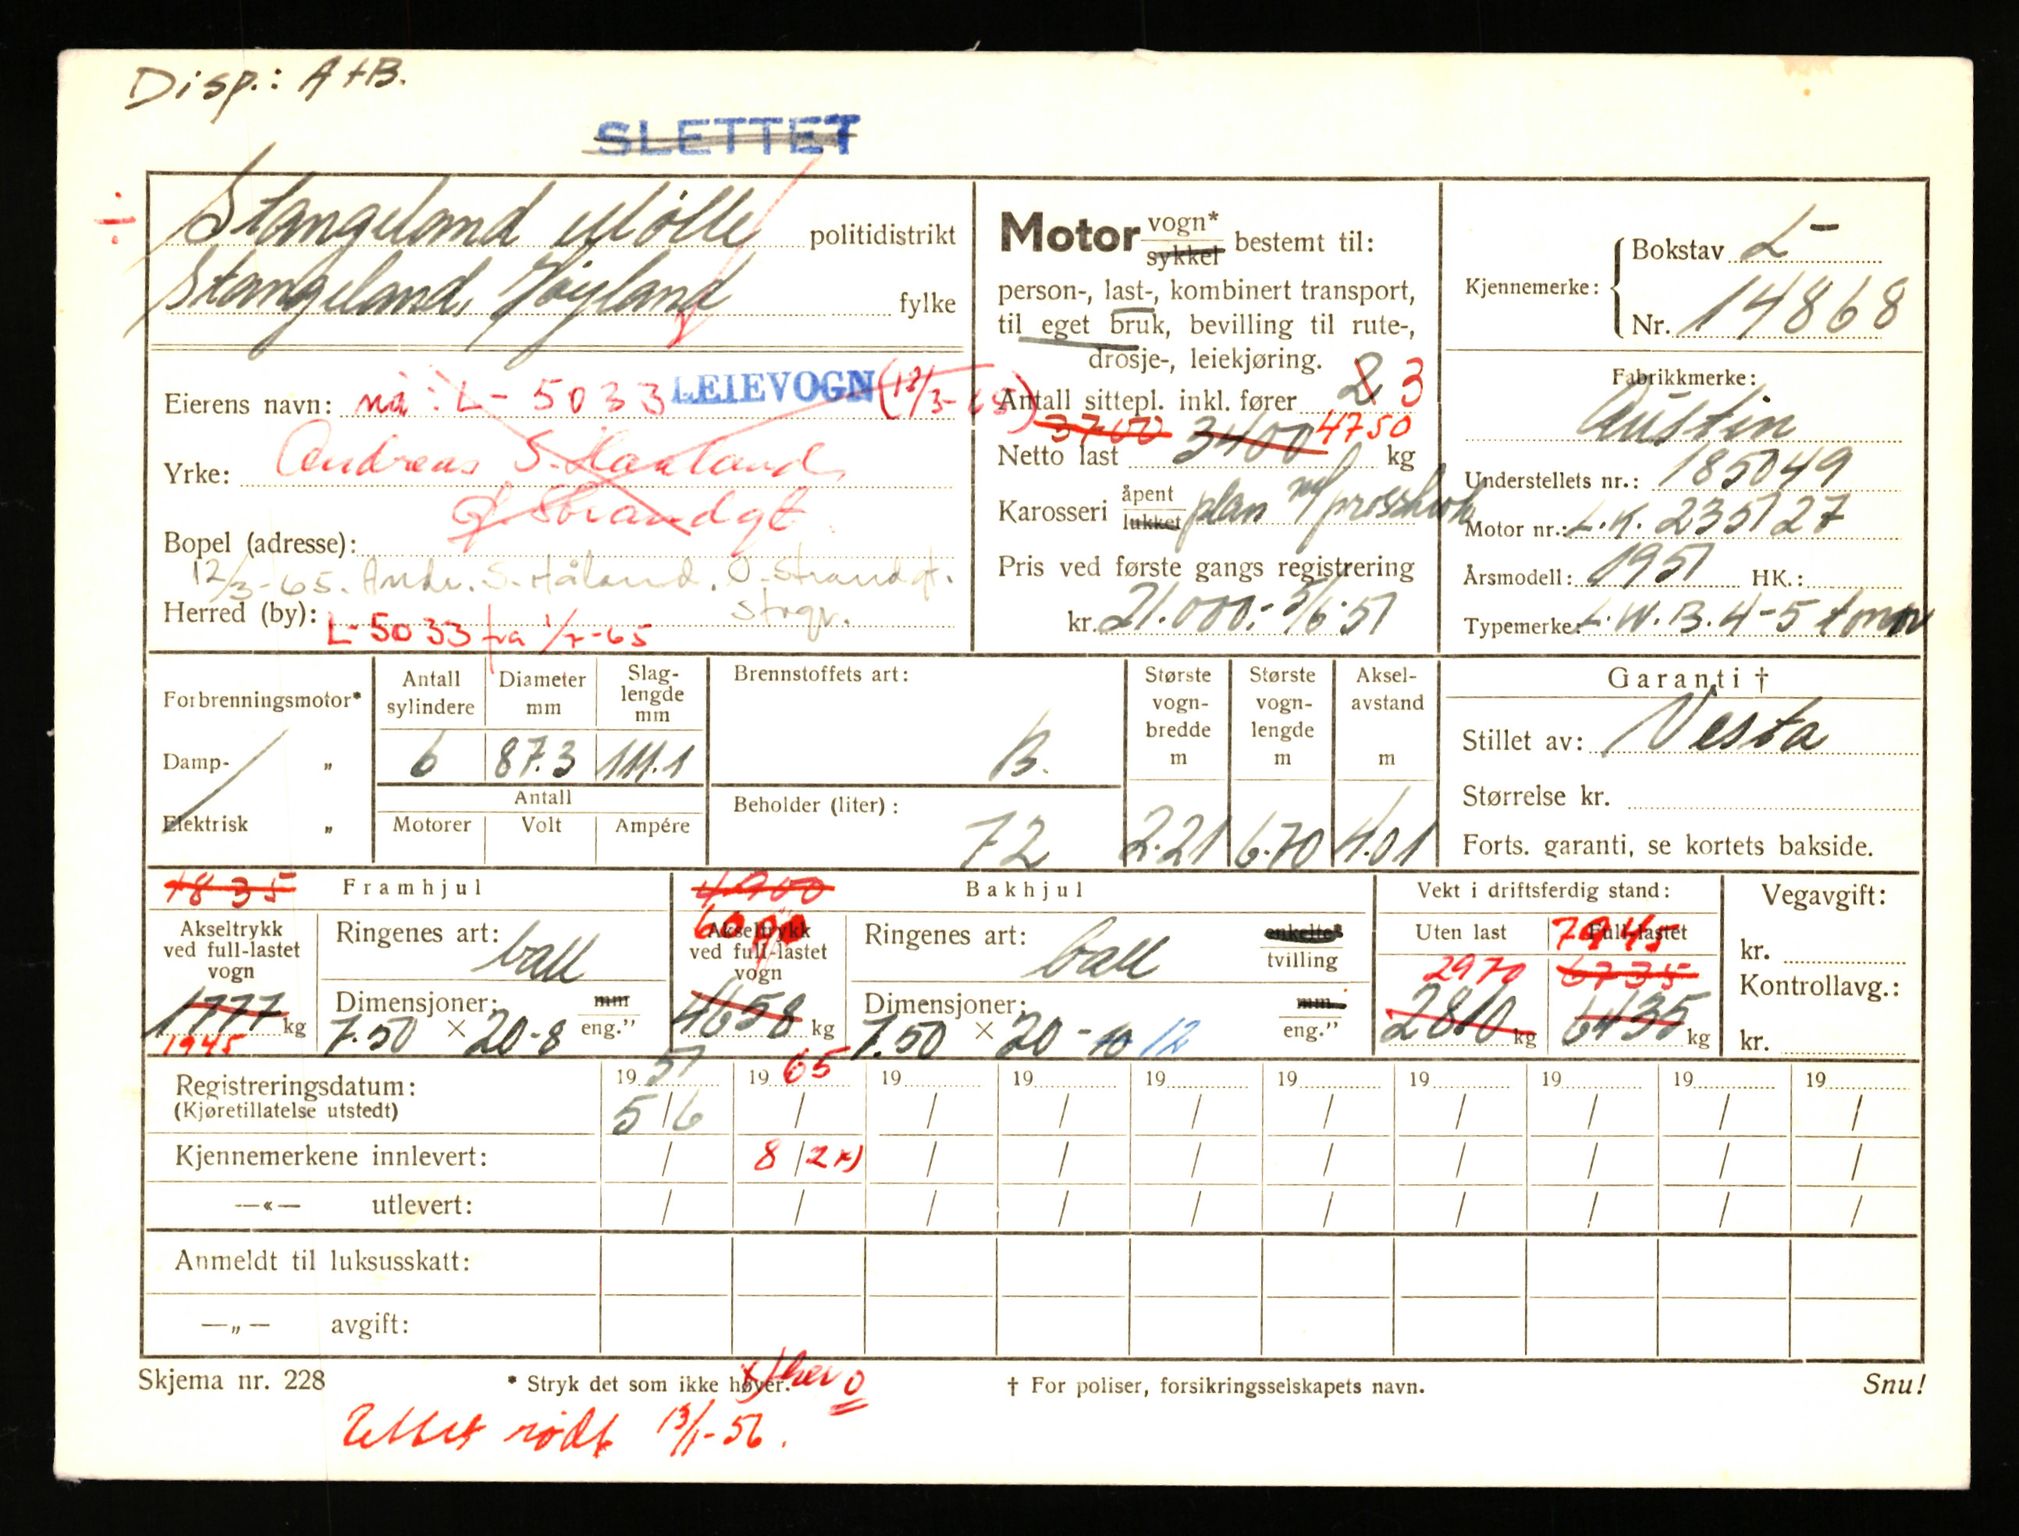 Disp.: A+B.
SLETTET
÷
Stangeland Mølle politidistrikt
Stangeland, Høyland fylke
Eierens navn: nå: L- 5033 LEIEVOGN (12/3-65)
Yrke: Andreas S. Haaland
Ø. Strandgt.
Bopel (adresse):
12/3-65. Andr. S. Håland. Ø. Strandgt.
Herred (by): L-5033 fra 1/7-65
Motor vogn* sykkel bestemt til:
person-, last-, kombinert transport,
til eget bruk, bevilling til rute-,
drosje-, leiekjøring.
Antall sittepl. inkl. fører 2 3
3700 3400 4750
Netto last kg
Karosseri åpent lukket plan
Pris ved første gangs registrering
kr. 21.000.- 5/6-51
Kjennemerke: Bokstav L-
Nr. 14868
Fabrikkmerke:
Austin
Understellets nr.: 185049
Motor nr.: L.K. 235127
Årsmodell: 1951 HK.:
Typemerke: L.W.B. 4-5 tonn
Forbrenningsmotor*
Damp- „
Elektrisk „
Antall sylindere Diameter mm Slag-lengde mm
6 87.3 111.1
Antall
Motorer Volt Ampére
Brennstoffets art:
B.
Beholder (liter):
72
Største vogn-bredde m Største vogn-lengde m Aksel-avstand m
2.21 6.70 4.01
Garanti †
Stillet av: Vesta
Størrelse kr.
Forts. garanti, se kortets bakside.
1835 Framhjul
Akseltrykk ved full-lastet vogn
1777 kg
1945
Ringenes art: ball
Dimensjoner: mm eng.”
7.50 × 20-8
4900 Bakhjul
Akseltrykk ved full-lastet vogn
4658 kg
Ringenes art: ball enkelte* tvilling
Dimensjoner: mm. eng.”
7.50 × 20-10 12
Vekt i driftsferdig stand:
Uten last Full-lastet
2970 6735
2810 kg 6435 kg
Vegavgift:
kr.
Kontrollavg.:
kr.
Registreringsdatum: 19 51 19 65 19 19 19 19 19 19 19 19
(Kjøretillatelse utstedt) 5/6 / / / / / / / / /
Kjennemerkene innlevert: / 8/2 x) / / / / / / / /
—«— utlevert: / / / / / / / / / /
Anmeldt til luksusskatt:
—„— avgift:
Skjema nr. 228 * Stryk det som ikke høver. † For poliser, forsikringsselskapets navn. Snu!
rødt 13/1-56.